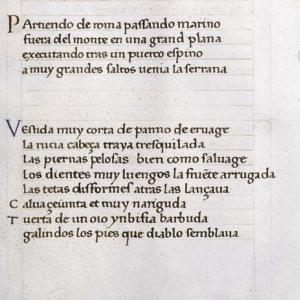 Partiendo de roma passando marino
fuera del monte en una grand plana
executando tras un puerco espino
a muy grandes saltos venia la serrana
Vestida muy corta de panno de ervage
La rucia cabeça traya tresquilada
las piernas pelosas bien como salvage
Los dientes muy luengos la fruẽte arrugada
las tetas disformes atras las lançava
Calva çeiunta et muy nariguda
Tuerta de un oio ynbifia barbuda
galindos los pies que diablo semblava